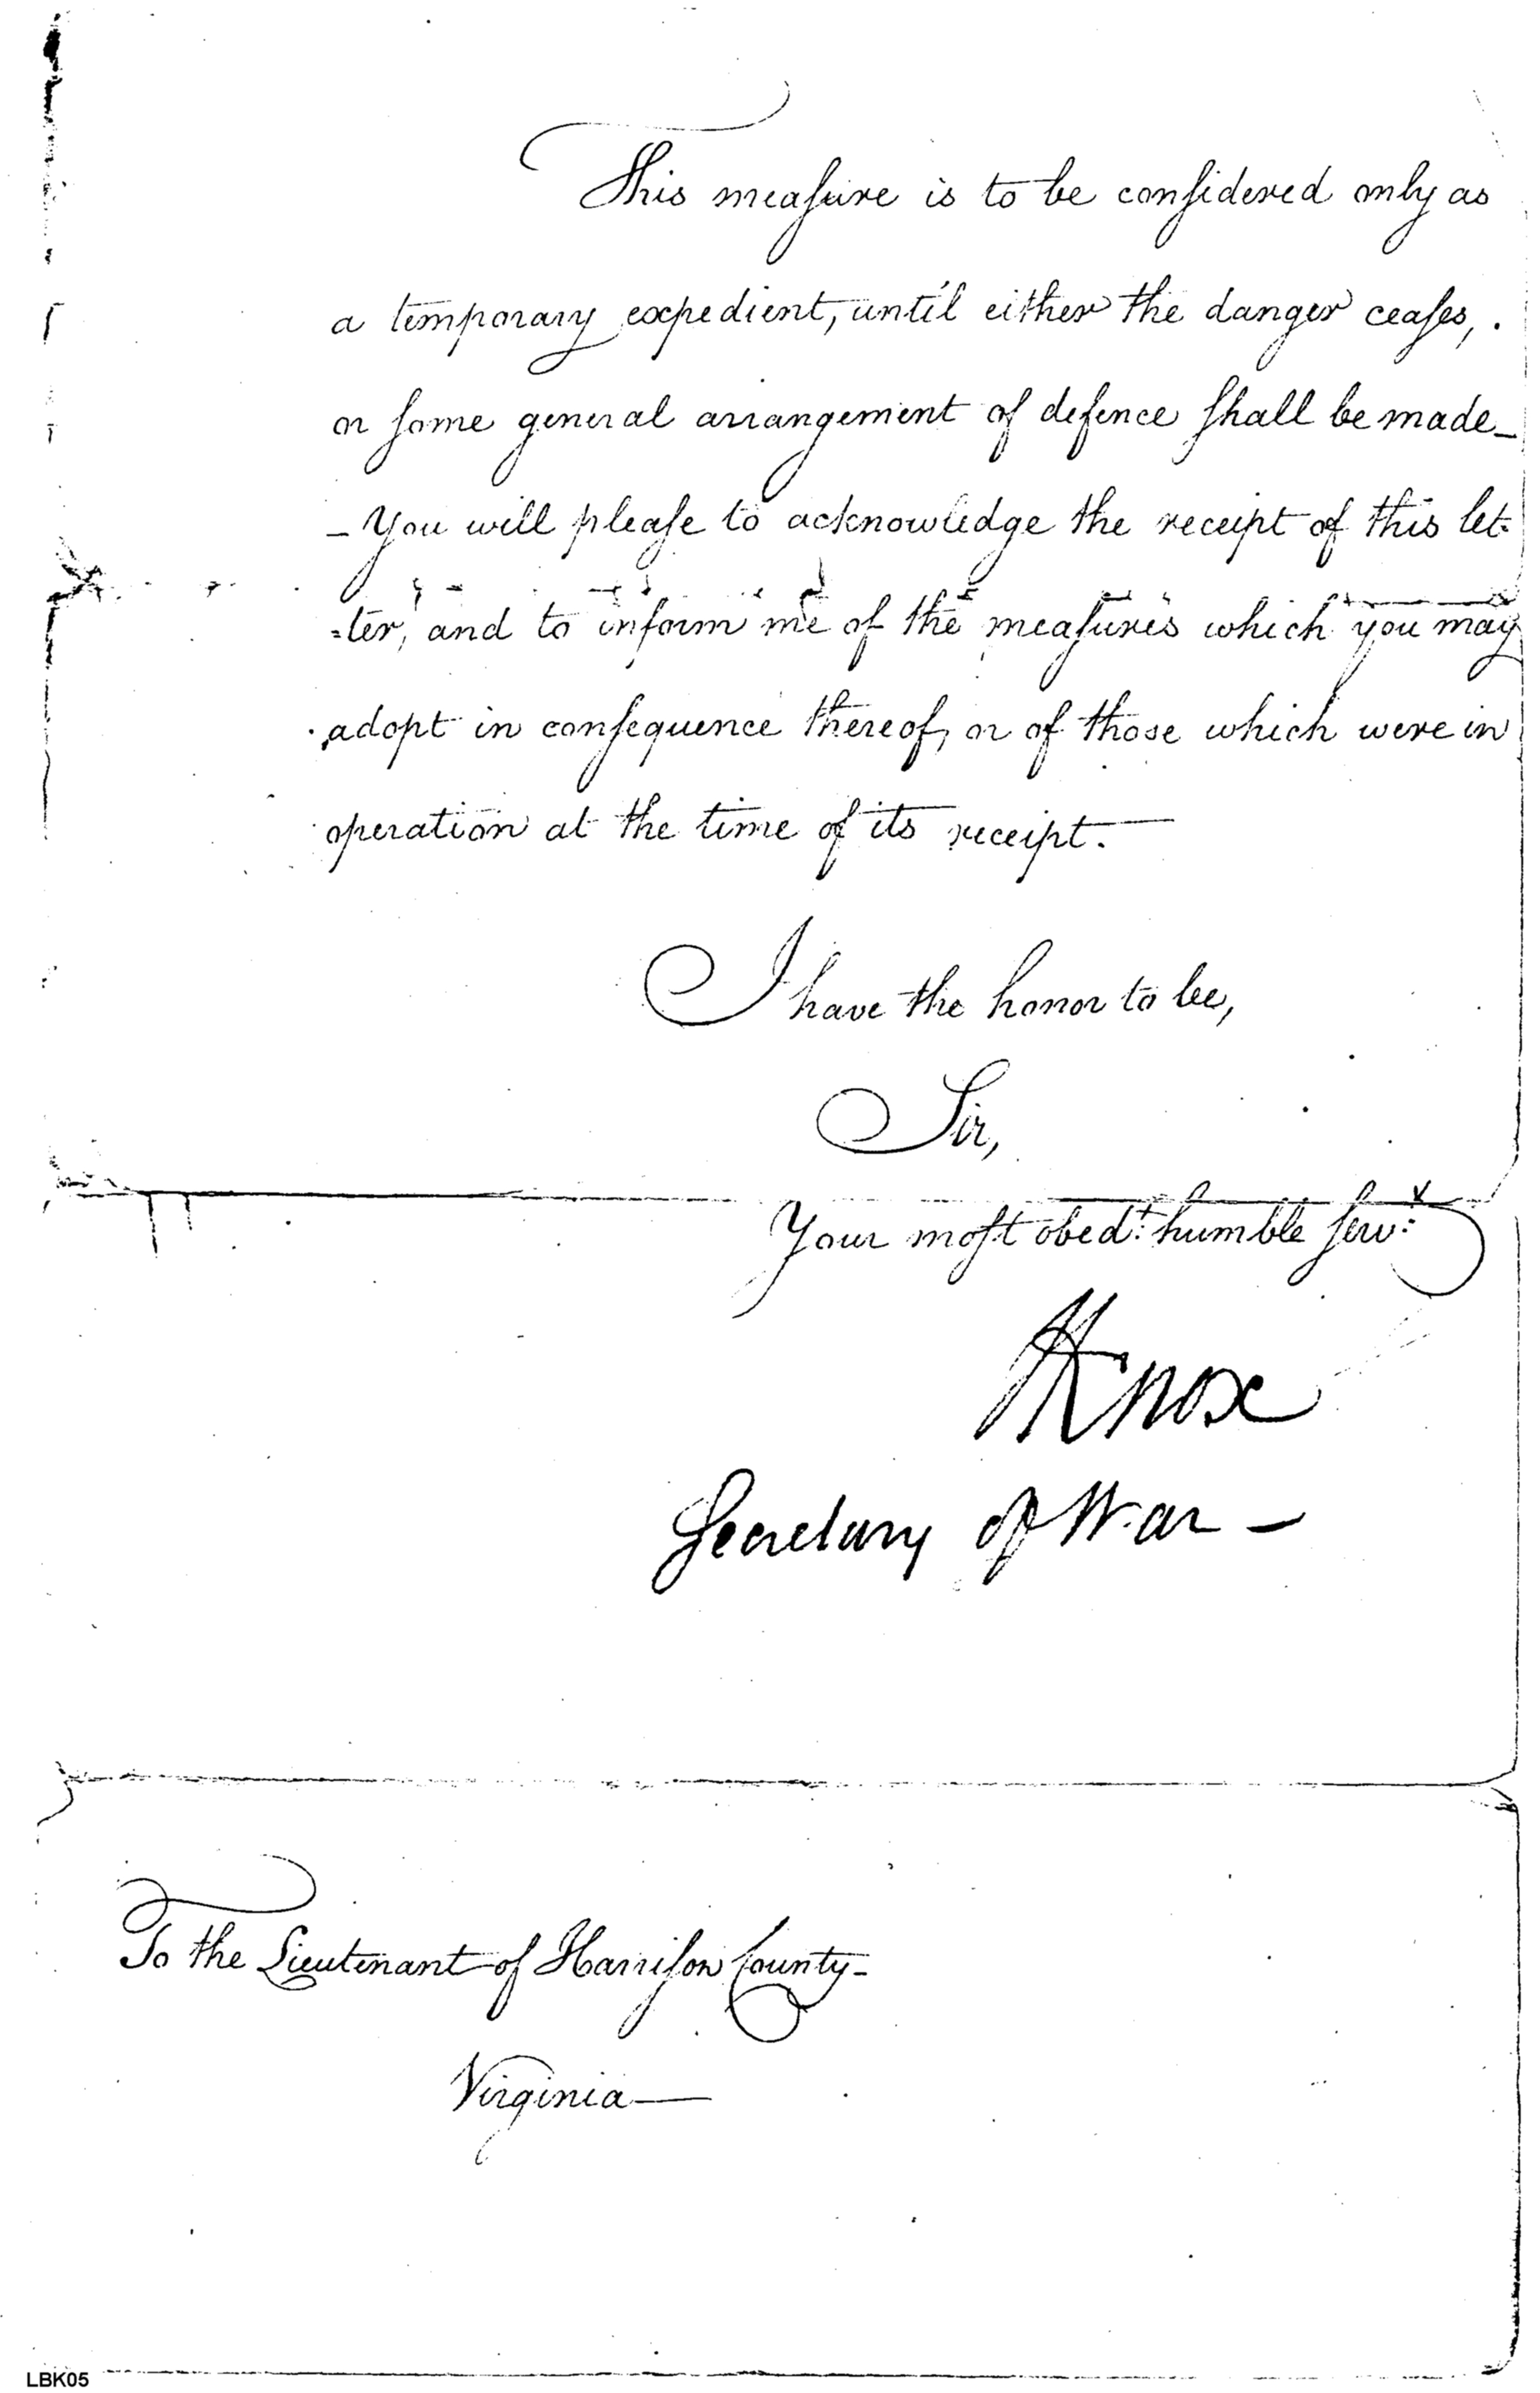 This meaſure is to be conſidered only as
a temporary expedient, until either the danger ceaſes,
or ſome general arrangement of defence ſhall be made_
_ You will pleaſe to acknowledge the receipt of this let-
=ter, and to inform me of the meaſures which you may
adopt in conſequence thereof, or of those which were in
operation at the time of its receipt.—
I have the honor to be,
Sir,
Your moſt obedt. humble ſervt.
HKnox
Secretary of War —
To the Lieutenant of Harriſon County_
Virginia—
LBK05